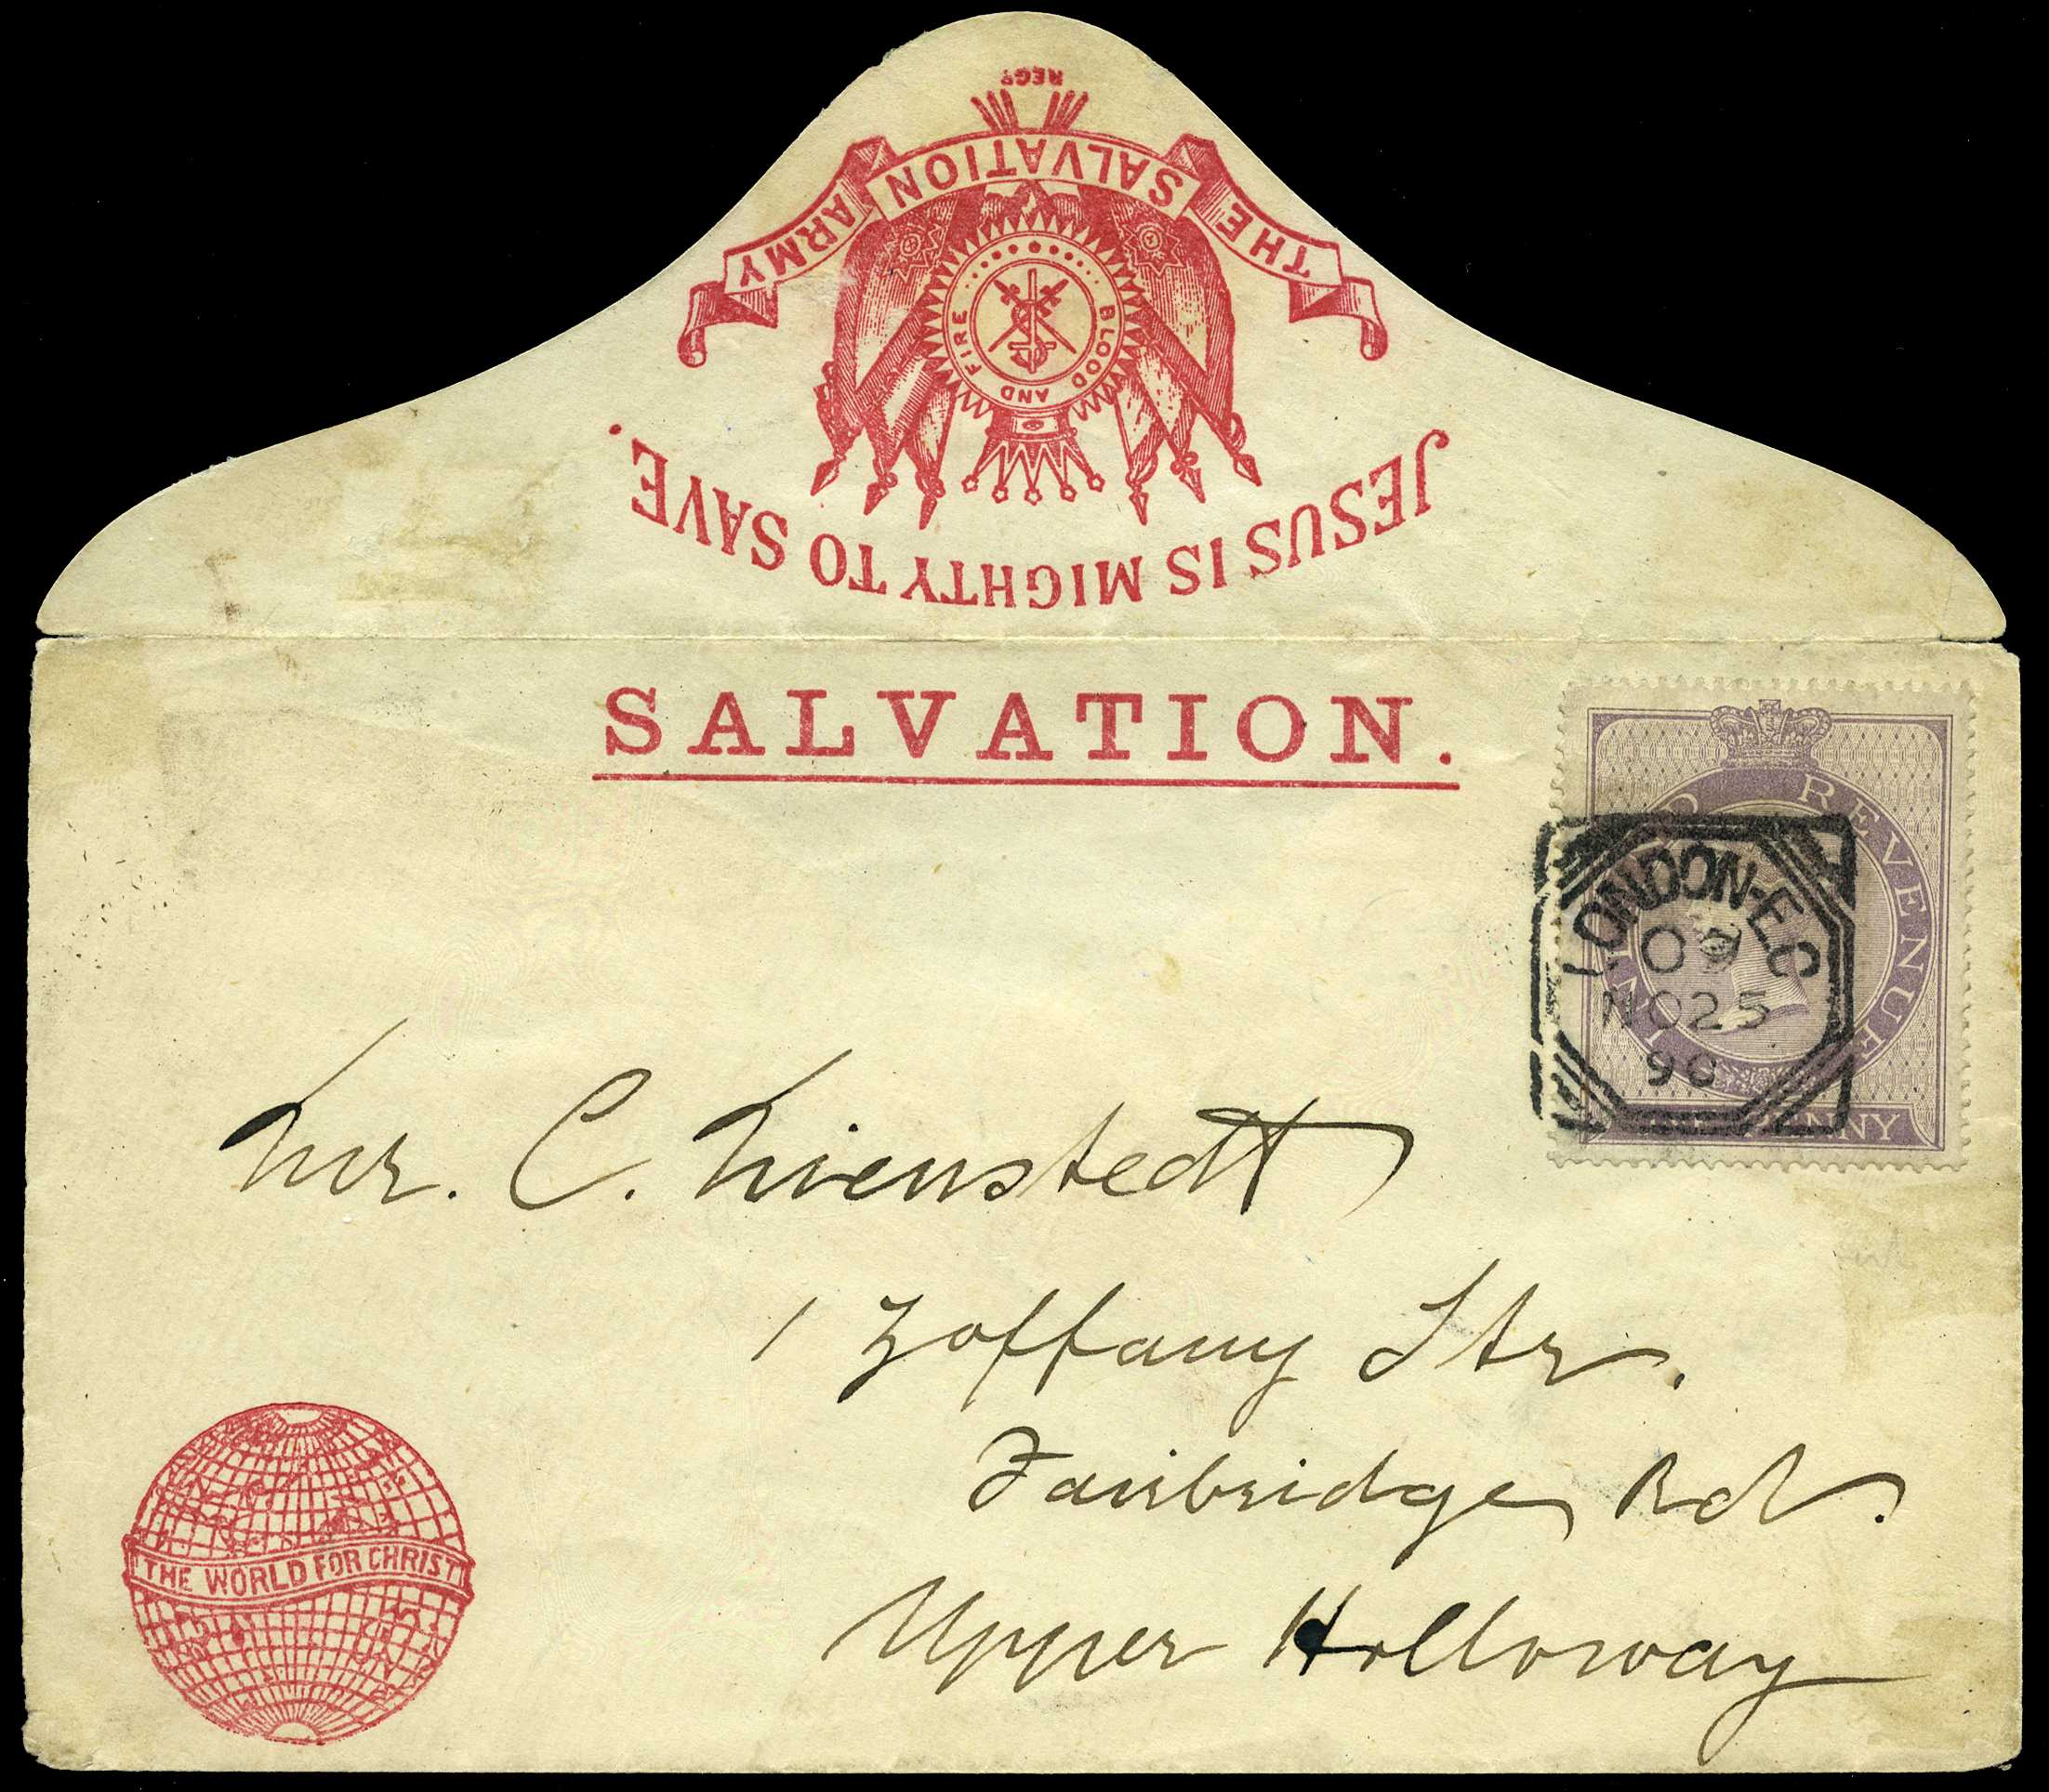 REGD
THE SALVATION ARMY
BLOOD AND FIRE
JESUS IS MIGHTY TO SAVE.
SALVATION.
INLAND REVENUE
LONDON-EC
NO25
90
ONE PENNY
Mr. C. Nienstedt
1 Zoffany Str.
Fairbridge Rd.
Upper Holloway
THE WORLD FOR CHRIST